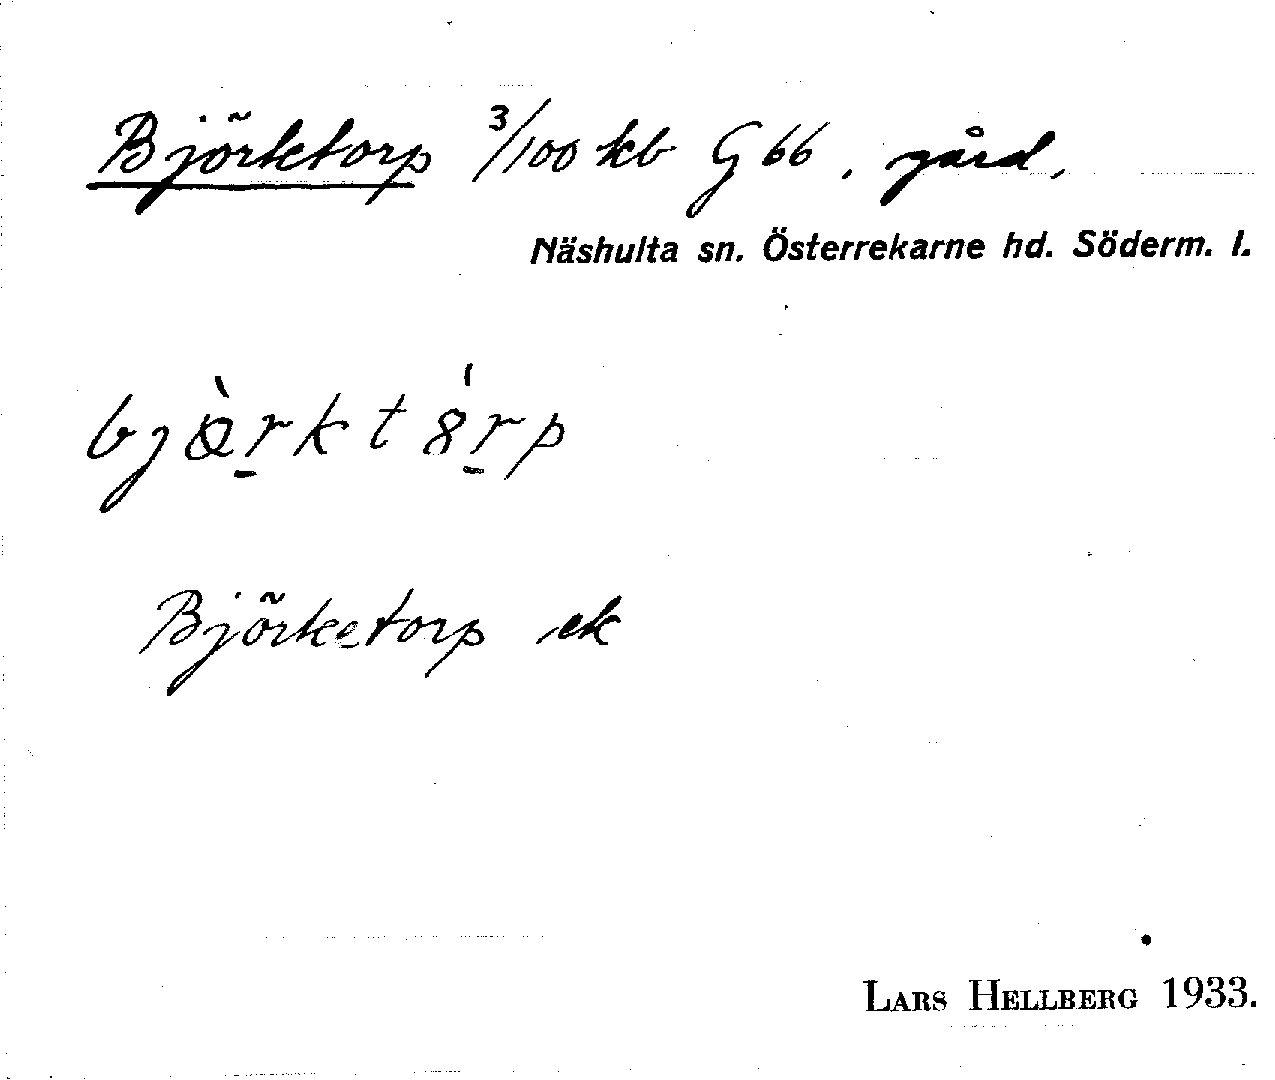 Björktorp 3/100 kb G 66, gård,
Näshulta sn. Österrekarne hd. Söderm. l.
Björketorp ek
LARS HELLBERG 1933.